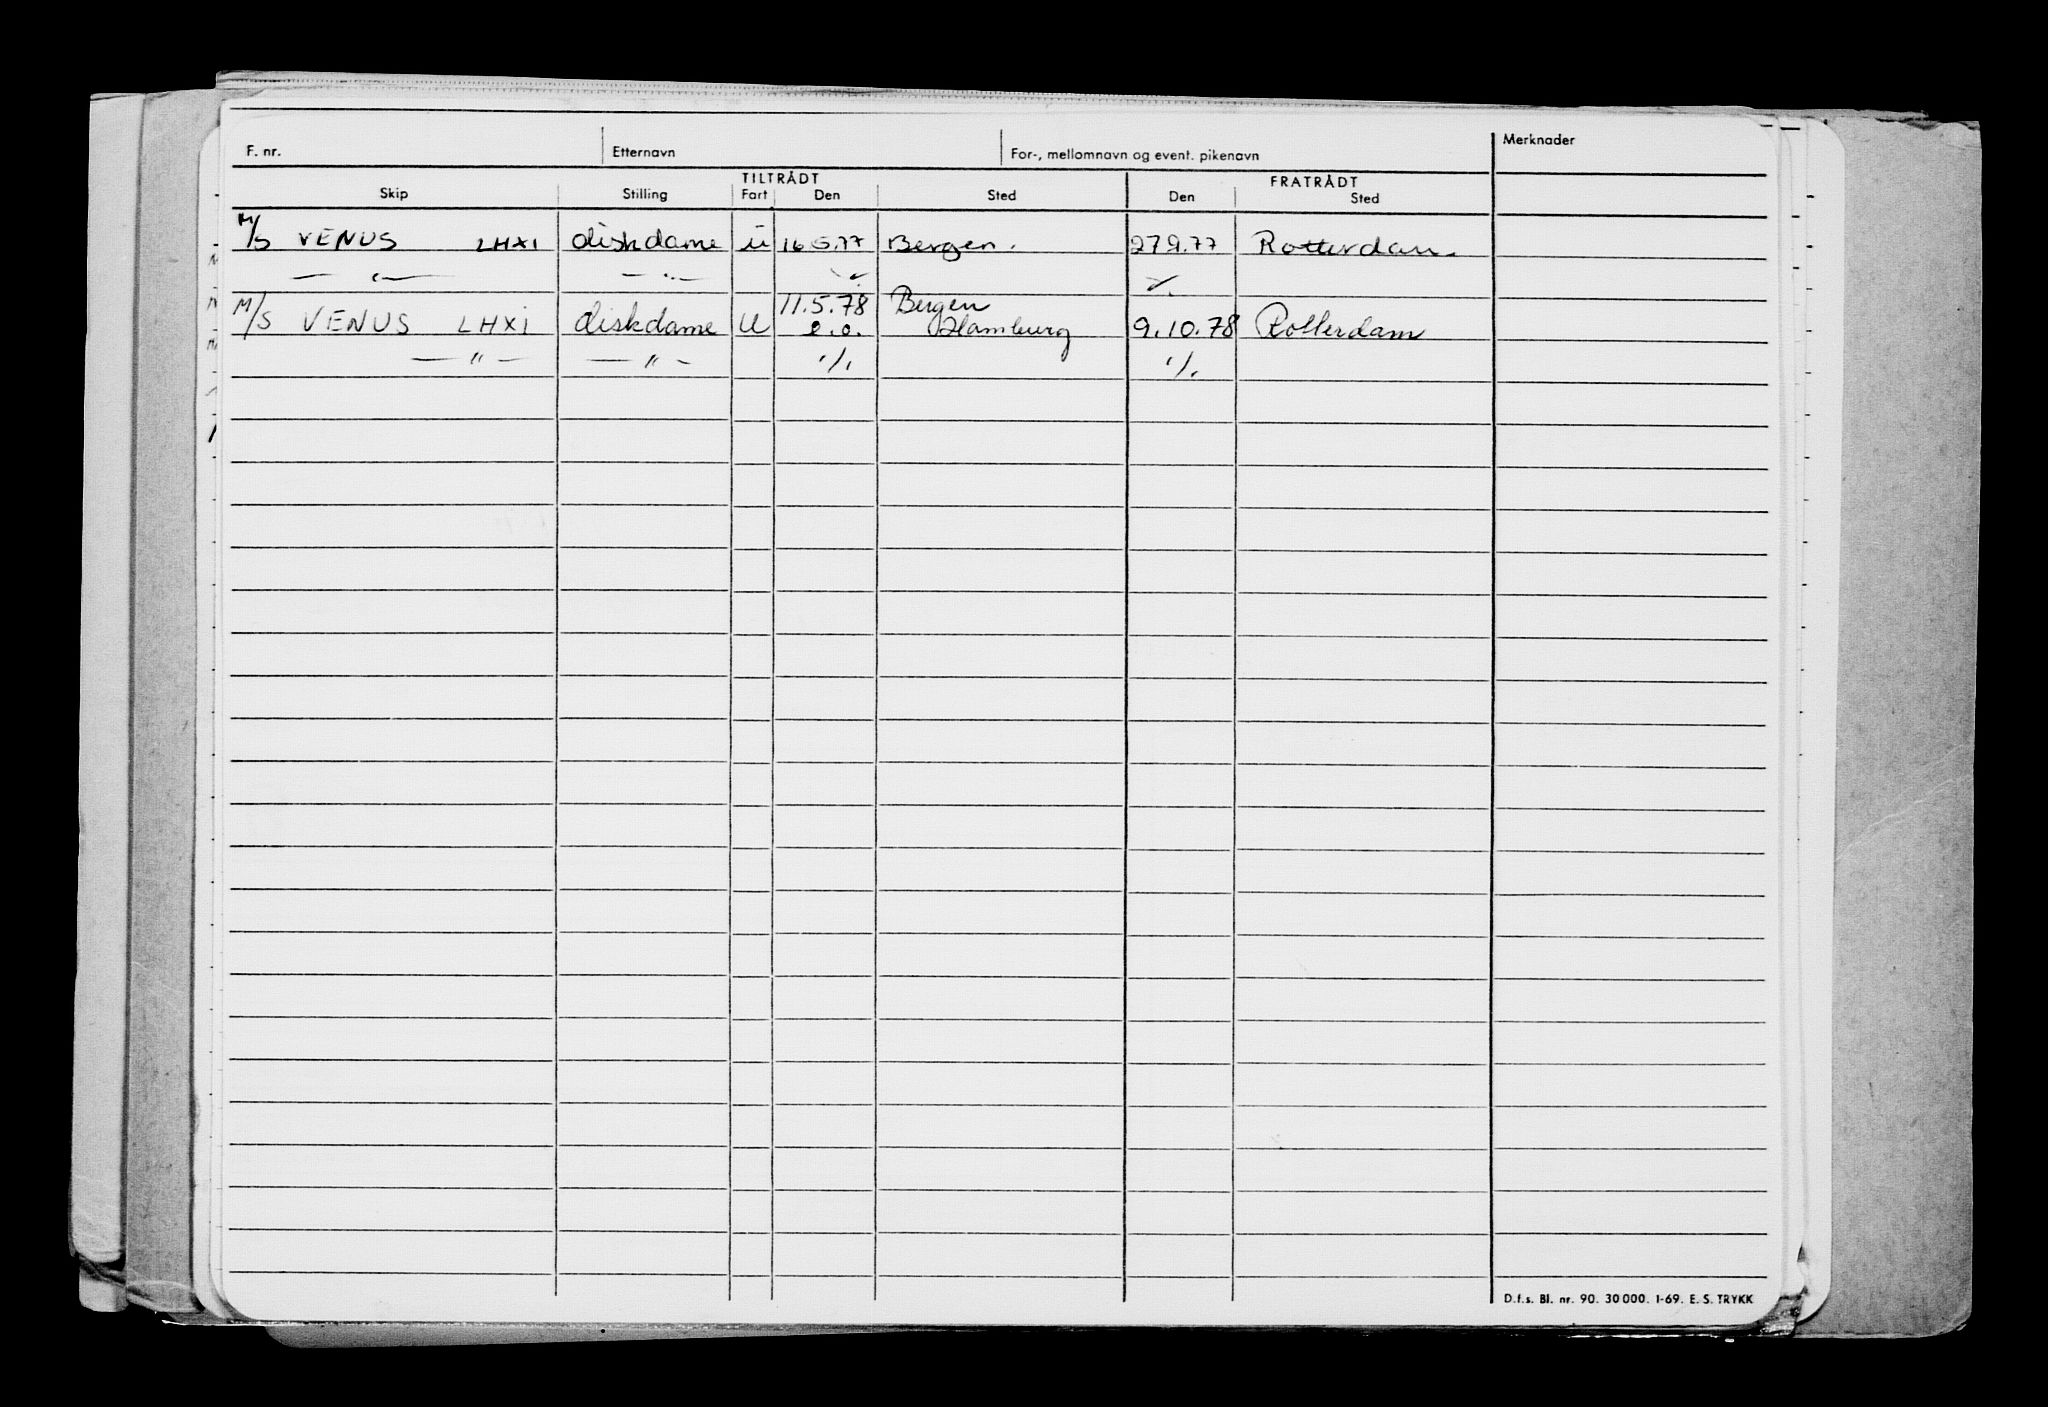 F. nr. Etternavn For-, mellomnavn og event. pikenavn Merknader
TILTRÅDT FRATRÅDT
Skip Stilling Fart Den Sted Den Sted
M/S VENUS LHXI diskdame u 16.5.77 Bergen. 27.9.77 Rotterdam.
— " — — " — ./. ./.
11.5.78 Bergen
M/S VENUS LHXI diskdame U e.o. Hamburg 9.10.78 Rotterdam
— " — — " — ./. ./.
D.f.s. Bl. nr. 90. 30 000. 1-69. E. S. TRYKK